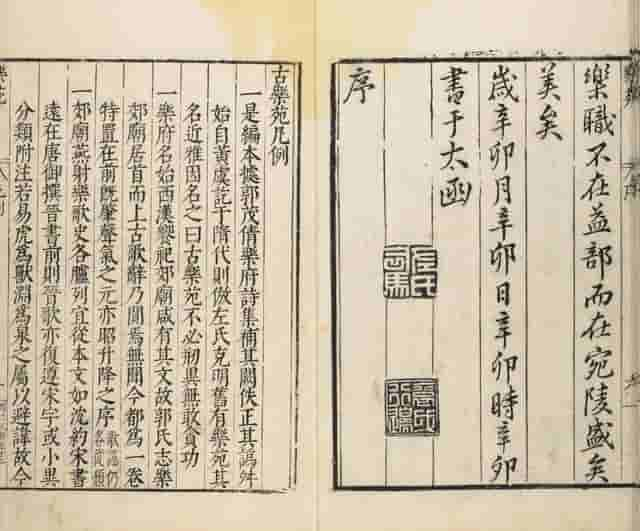 樂職不在益部而在宛陵盛矣
美矣
歲辛卯月辛卯日辛卯時辛卯
書于太函
序
古樂苑凡例
一是編本據郭茂倩樂府詩集補其闕佚正其譌舛
始自黃虞訖于隋代則倣左氏克明舊有樂苑其
名近雅因名之曰古樂苑不必刱異無敢貪功
一樂府名始西漢饗祀郊廟咸有其文故郭氏志樂
郊廟居首而上古歌辭乃闕焉無聞今都爲一卷
特置在前旣肇聲氣之元亦昭升降之序
一郊廟燕射樂歌史各臚列宜從本文如沈約宋書
遠在唐御撰晉書前則晉歌亦復遵宋字或小異
分類附注若易虎爲獸淵爲泉之屬以避諱故今